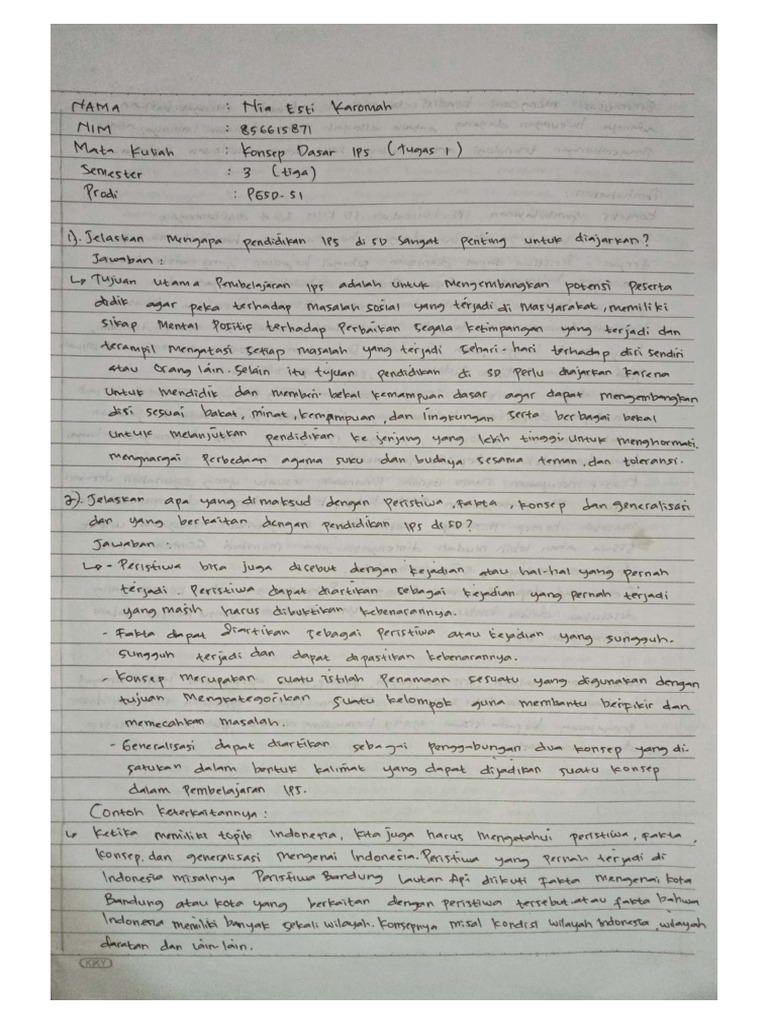 NAMA : Nia Esti Karomah
NIM : 856615871
Mata Kuliah : Konsep Dasar IPS (Tugas 1)
Semester : 3 (tiga)
Prodi : PGSD-S1
1). Jelaskan mengapa pendidikan IPS di SD sangat penting untuk diajarkan?
Jawaban :
↳ Tujuan utama Pembelajaran IPS adalah untuk Mengembangkan potensi Peserta
didik agar peka terhadap Masalah sosial yang terjadi di Masyarakat, memiliki
sikap Mental Positif terhadap Perbaikan segala ketimpangan yang terjadi dan
terampil Mengatasi setiap masalah yang terjadi sehari-hari terhadap diri sendiri
atau orang lain. Selain itu tujuan pendidikan di SD perlu diajarkan karena
untuk mendidik dan memberi bekal kemampuan dasar agar dapat mengembangkan
diri sesuai bakat, minat, kemampuan, dan lingkungan serta berbagai bekal
untuk melanjutkan pendidikan ke jenjang yang lebih tinggi untuk menghormati,
menghargai Perbedaan agama suku dan budaya sesama teman, dan toleransi.
2). Jelaskan apa yang dimaksud dengan Peristiwa, Fakta, konsep dan generalisasi
dan yang berkaitan dengan pendidikan IPS di SD?
Jawaban :
↳ - Peristiwa bisa juga disebut dengan kejadian atau hal-hal yang pernah
terjadi. Peristiwa dapat diartikan sebagai kejadian yang pernah terjadi
yang masih harus dibuktikan kebenarannya.
- Fakta dapat diartikan sebagai peristiwa atau kejadian yang sungguh-
sungguh terjadi dan dapat dipastikan kebenarannya.
- Konsep merupakan suatu istilah Penamaan sesuatu yang digunakan dengan
tujuan Mengkategorikan suatu kelompok guna membantu berpikir dan
memecahkan masalah.
- Generalisasi dapat diartikan sebagai penggabungan dua konsep yang di-
satukan dalam bentuk kalimat yang dapat dijadikan suatu konsep
dalam Pembelajaran IPS.
Contoh keterkaitannya :
↳ Ketika memiliki topik Indonesia, kita juga harus mengetahui peristiwa, fakta,
konsep, dan generalisasi mengenai Indonesia. Peristiwa yang pernah terjadi di
Indonesia misalnya Peristiwa Bandung Lautan Api diikuti fakta mengenai kota
Bandung atau kota yang berkaitan dengan peristiwa tersebut atau fakta bahwa
Indonesia memiliki banyak sekali wilayah. Konsepnya misal kondisi wilayah Indonesia, wilayah
daratan dan lain-lain.
KKY